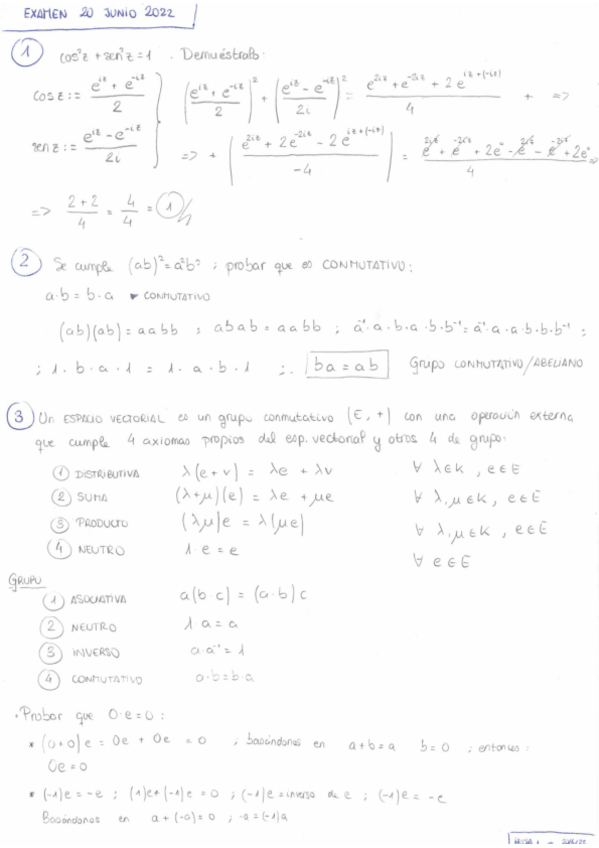 EXAMEN 20 JUNIO 2022
① cos²z + sen²z = 1 . Demuéstralo:
cos z := (e^{iz} + e^{-iz})/2 } ((e^{iz} + e^{-iz})/2)² + ((e^{iz} - e^{-iz})/2i)² = (e^{2iz} + e^{-2iz} + 2e^{iz+(-iz)})/4 + =>
sen z := (e^{iz} - e^{-iz})/2i => + ((e^{2iz} + 2e^{-2iz} - 2e^{iz+(-iz)})/-4) = (e^{2iz} + e^{-2iz} + 2e⁰ - e^{2iz} - e^{-2iz} + 2e⁰)/4 =>
=> (2+2)/4 = 4/4 = 1
② Se cumple (ab)² = a²b² ; probar que es CONMUTATIVO:
a·b = b·a ▸ CONMUTATIVO
(ab)(ab) = aabb ; abab = aabb ; a⁻¹·a·b·a·b·b⁻¹ = a⁻¹·a·a·b·b·b⁻¹ ;
; 1·b·a·1 = 1·a·b·1 ;. ba = ab Grupo CONMUTATIVO/ABELIANO
③ Un ESPACIO VECTORIAL es un grupo conmutativo (E, +) con una operación externa
que cumple 4 axiomas propios del esp. vectorial y otros 4 de grupo:
① DISTRIBUTIVA λ(e+v) = λe + λv ∀ λ∈K , e∈E
② SUMA (λ+μ)(e) = λe + μe ∀ λ,μ∈K , e∈E
③ PRODUCTO (λμ)e = λ(μe) ∀ λ,μ∈K , e∈E
④ NEUTRO 1·e = e ∀ e∈E
GRUPO
① ASOCIATIVA a(b·c) = (a·b)c
② NEUTRO 1 a = a
③ INVERSO a·a⁻¹ = 1
④ CONMUTATIVO a·b = b·a
· Probar que 0·e = 0 :
* (0+0)e = 0e + 0e = 0 ; basándonos en a+b=a b=0 ; entonces :
0e = 0
* (-1)e = -e ; (1)e + (-1)e = 0 ; (-1)e = inverso de e ; (-1)e = -e
Basándonos en a + (-a) = 0 ; -a = (-1)a